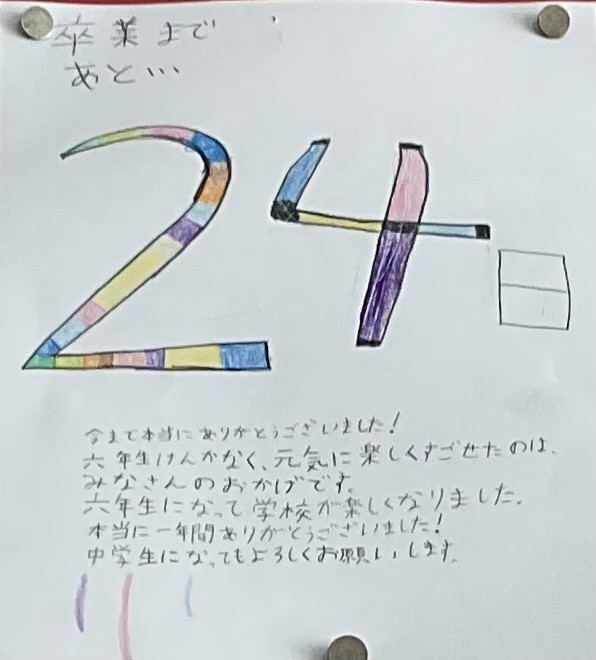 卒業まで
あと…
24日
今まで本当にありがとうございました！
六年生けんかなく、元気に楽しくすごせたのは、
みなさんのおかげです。
六年生になって学校が楽しくなりました。
本当に一年間ありがとうございました！
中学生になってもよろしくお願いします。